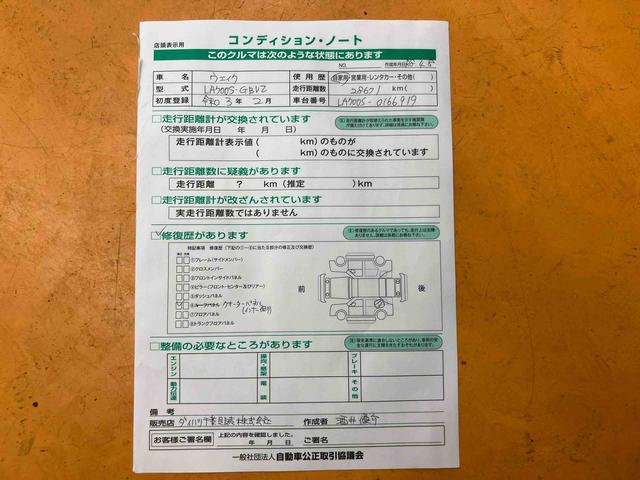 店頭表示用
コンディション・ノート
このクルマは次のような状態にあります
NO. 作成年月日
車名 ウェイク 使用歴 自家用・営業用・レンタカー・その他( )
型式 LA700S-GBVZ 走行距離数 28671 km( )
初度登録 令和3年2月 車台番号 LA700S-0166919
□走行距離計が交換されています
(交換実施年月日 年 月 日)
走行距離計表示値( km)のものが
( km)のものに交換されています
□走行距離数に疑義があります
走行距離 ? km(推定 )km
□走行距離計が改ざんされています
実走行距離数ではありません
□修復歴があります
特記事項 修復歴(下記の①~⑧に当たる部分の修正及び交換歴)
①フレーム(サイドメンバー)
②クロスメンバー
③フロントインサイドパネル
④ピラー(フロント・センター及びリアー)
⑤ダッシュパネル
⑥ルーフパネル クオーターパネル
⑦フロアパネル
⑧トランクフロアパネル
前 後
□整備の必要なところがあります
エンジン 操向・懸架 ブレーキ
動力伝達 電装 その他
備考
販売店 ダイハツ千葉販売株式会社 作成者 酒井
お客様ご署名欄 上記の内容を確認しました。
年 月 日 ご署名
一般社団法人 自動車公正取引協議会